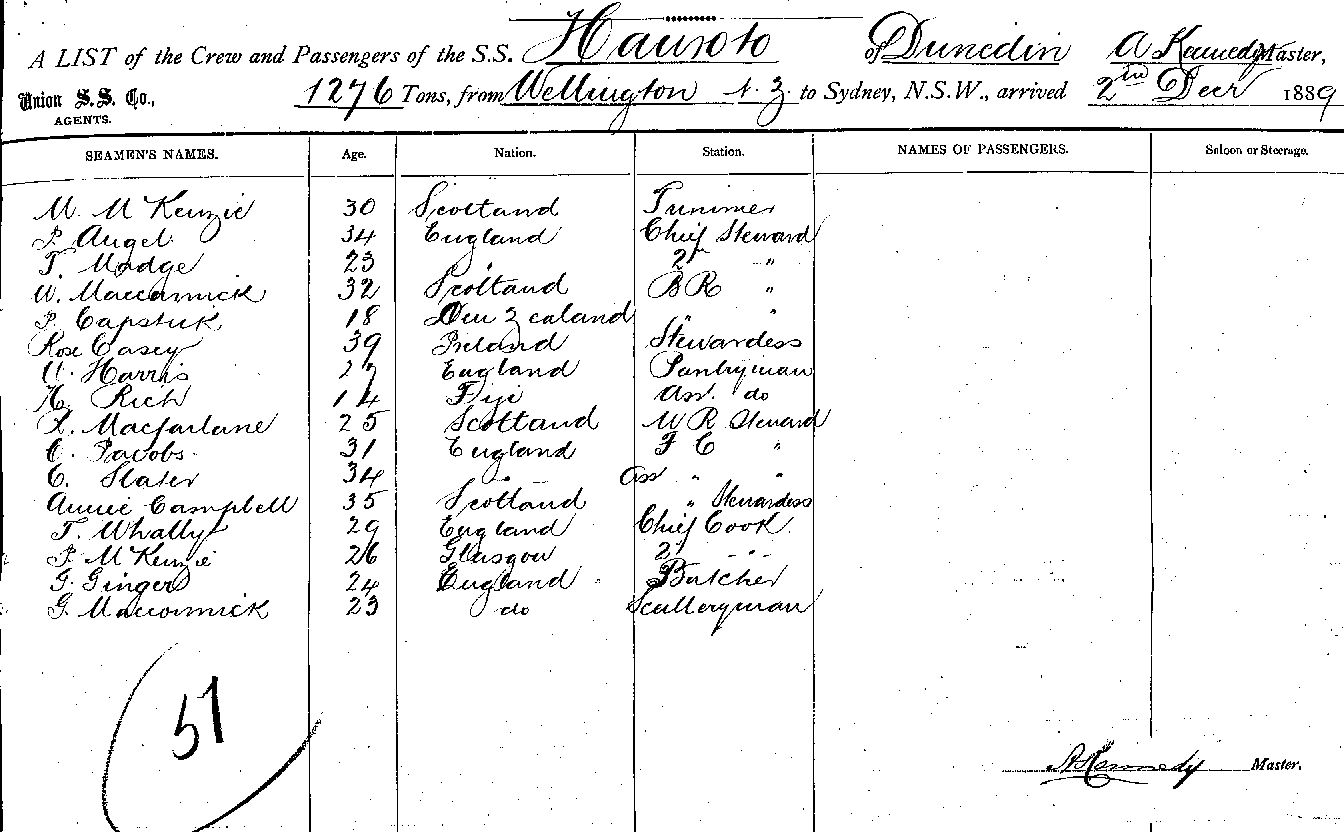 A LIST of the Crew and Passengers of the S.S. Hauroto of Dunedin A Kennedy Master,
Union S.S. Co., AGENTS. 1276 Tons, from Wellington N.Z. to Sydney, N.S.W., arrived 2nd Decr 1889
SEAMEN'S NAMES. Age. Nation. Station. NAMES OF PASSENGERS. Saloon or Steerage.
M. McKenzie 30 Scotland Trimmer
P. Angel 34 England Chief Steward
T. Madge 23 " 2nd "
W. Maccormick 32 Scotland BR "
P. Capstick 18 New Zealand " "
Rose Casey 39 Ireland Stewardess
Harris England Pantryman
H. Rich 14 Fiji Ass. do
Macfarlane 25 Scotland M R Steward
C. Jacobs 31 England F C "
C. Slater 34 " Ass " "
Annie Campbell 35 Scotland " Stewardess
T. Whally 29 England Chief Cook
P. McKenzie 26 Glasgow 2nd "
G. Ginger 24 England Butcher
G. Maccormick 23 do Sculleryman
51
A Kennedy Master.